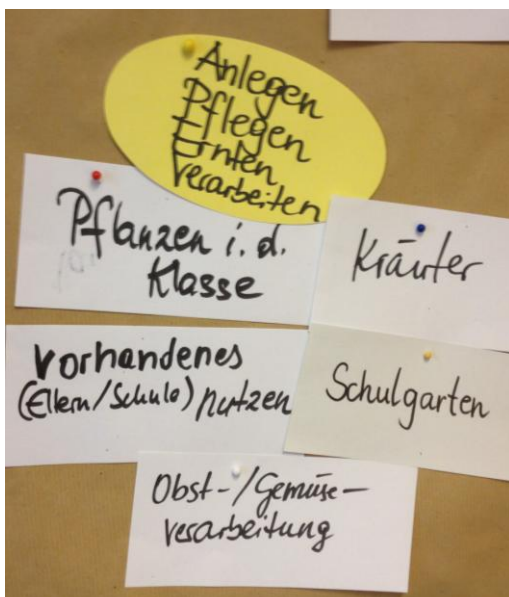 Anlegen
Pflegen
Ernten
Verarbeiten
Pflanzen i. d.
Klasse
Kräuter
Vorhandenes
(Eltern/Schule) nutzen
Schulgarten
Obst-/Gemüse-
verarbeitung